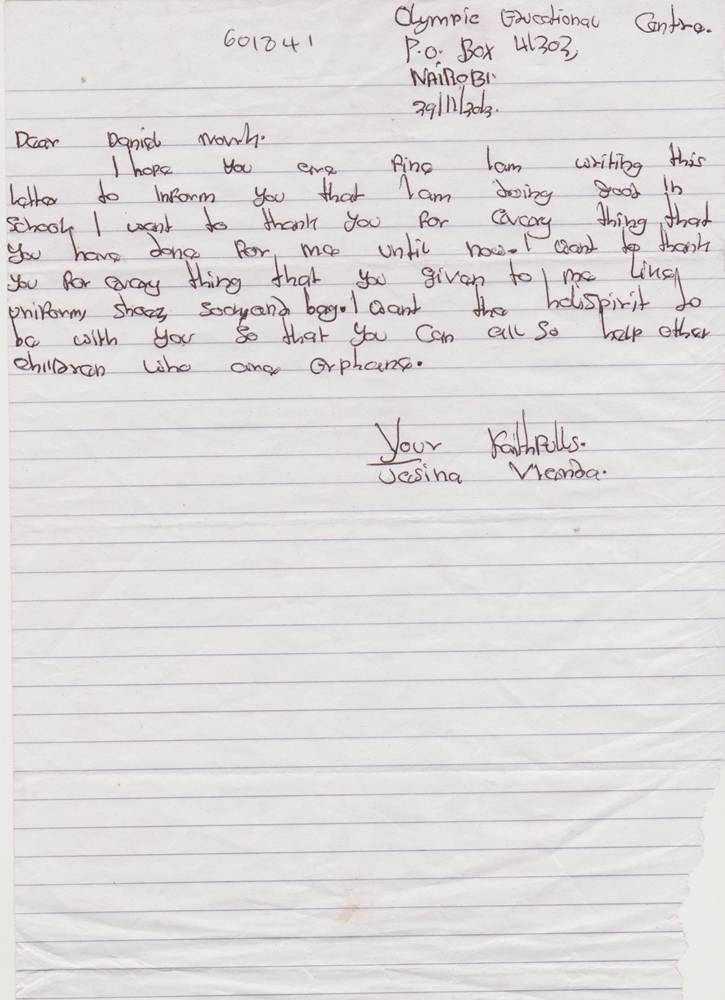 Olympic Educational Centre.
601841
P.O. Box 41303,
NAIROBI.
Dear Daniel
I hope you are fine I am writing this
letter to inform you that I am doing good in
school. I want to thank you for every thing that
you have done for me until now. I want to thank
you for every thing that you given to me like,
uniform, shoes, socks, and bag. I want the holispirit to
be with you so that you can all so help other
children who are orphans.
Your Faithfulls.
Jesina